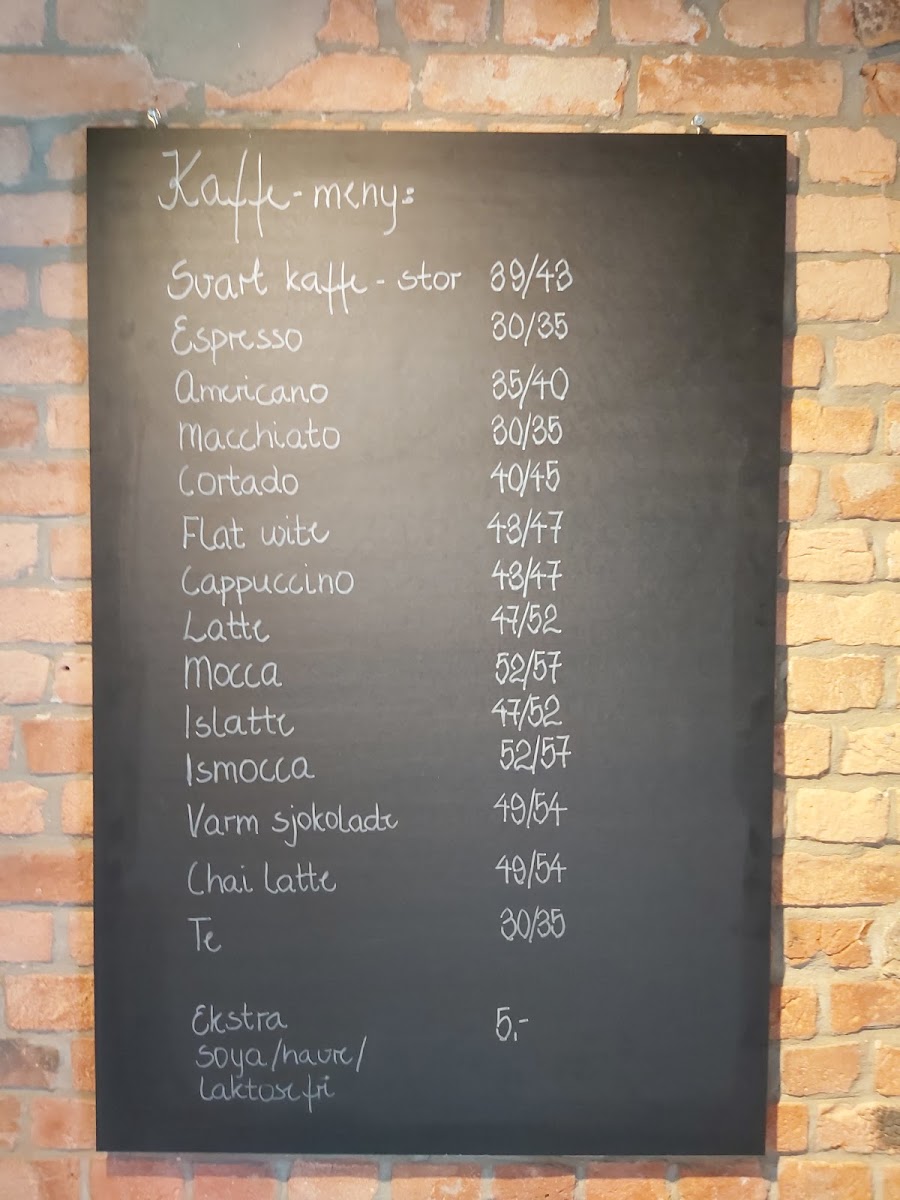 Kaffe-meny:
Svart kaffe - stor 39/43
Espresso 30/35
Americano 35/40
Macchiato 30/35
Cortado 40/45
Flat wite 43/47
Cappuccino 43/47
Latte 47/52
Mocca 52/57
Islatte 47/52
Ismocca 52/57
Varm sjokolade 49/54
Chai latte 49/54
Te 30/35
Ekstra 5,-
soya/havre/
laktosefri